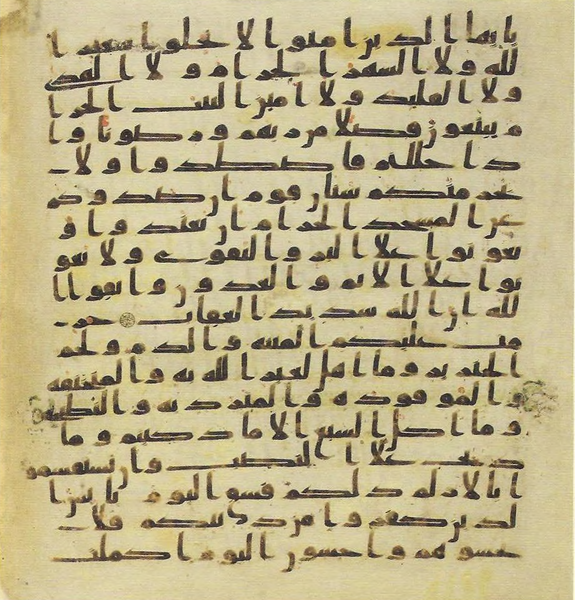 يا يها الذين امنوا لا تحلوا شعير ا
لله ولا الشهر الحرام ولا الهدى
ولا القليد ولا امين البيت الحرا
م يبتغون فضلا من ربهم ورضونا وا
ذا حللتم فاصطدوا ولا
يجرمنكم شنان قوم ان صدوكم
عن المسجد الحرام ان تعتدوا و
تعونوا علا البر والتقوى ولا تعو
نوا علا الاثم والعدون واتقوا ا
لله ان الله شديد العقاب حر
مت عليكم الميته والدم ولحم
الخنزير وما اهل لغير الله به والمنخنقه
والموقوذه والمترديه والنطيحه
وما اكل السبع الا ما ذكيتم وما
ذبح علا النصب وان تستقسمو
ا بالازلم ذلكم فسق اليوم يئس ا
لذين كفروا من دينكم فلا
تخشوهم واخشون اليوم اكملت